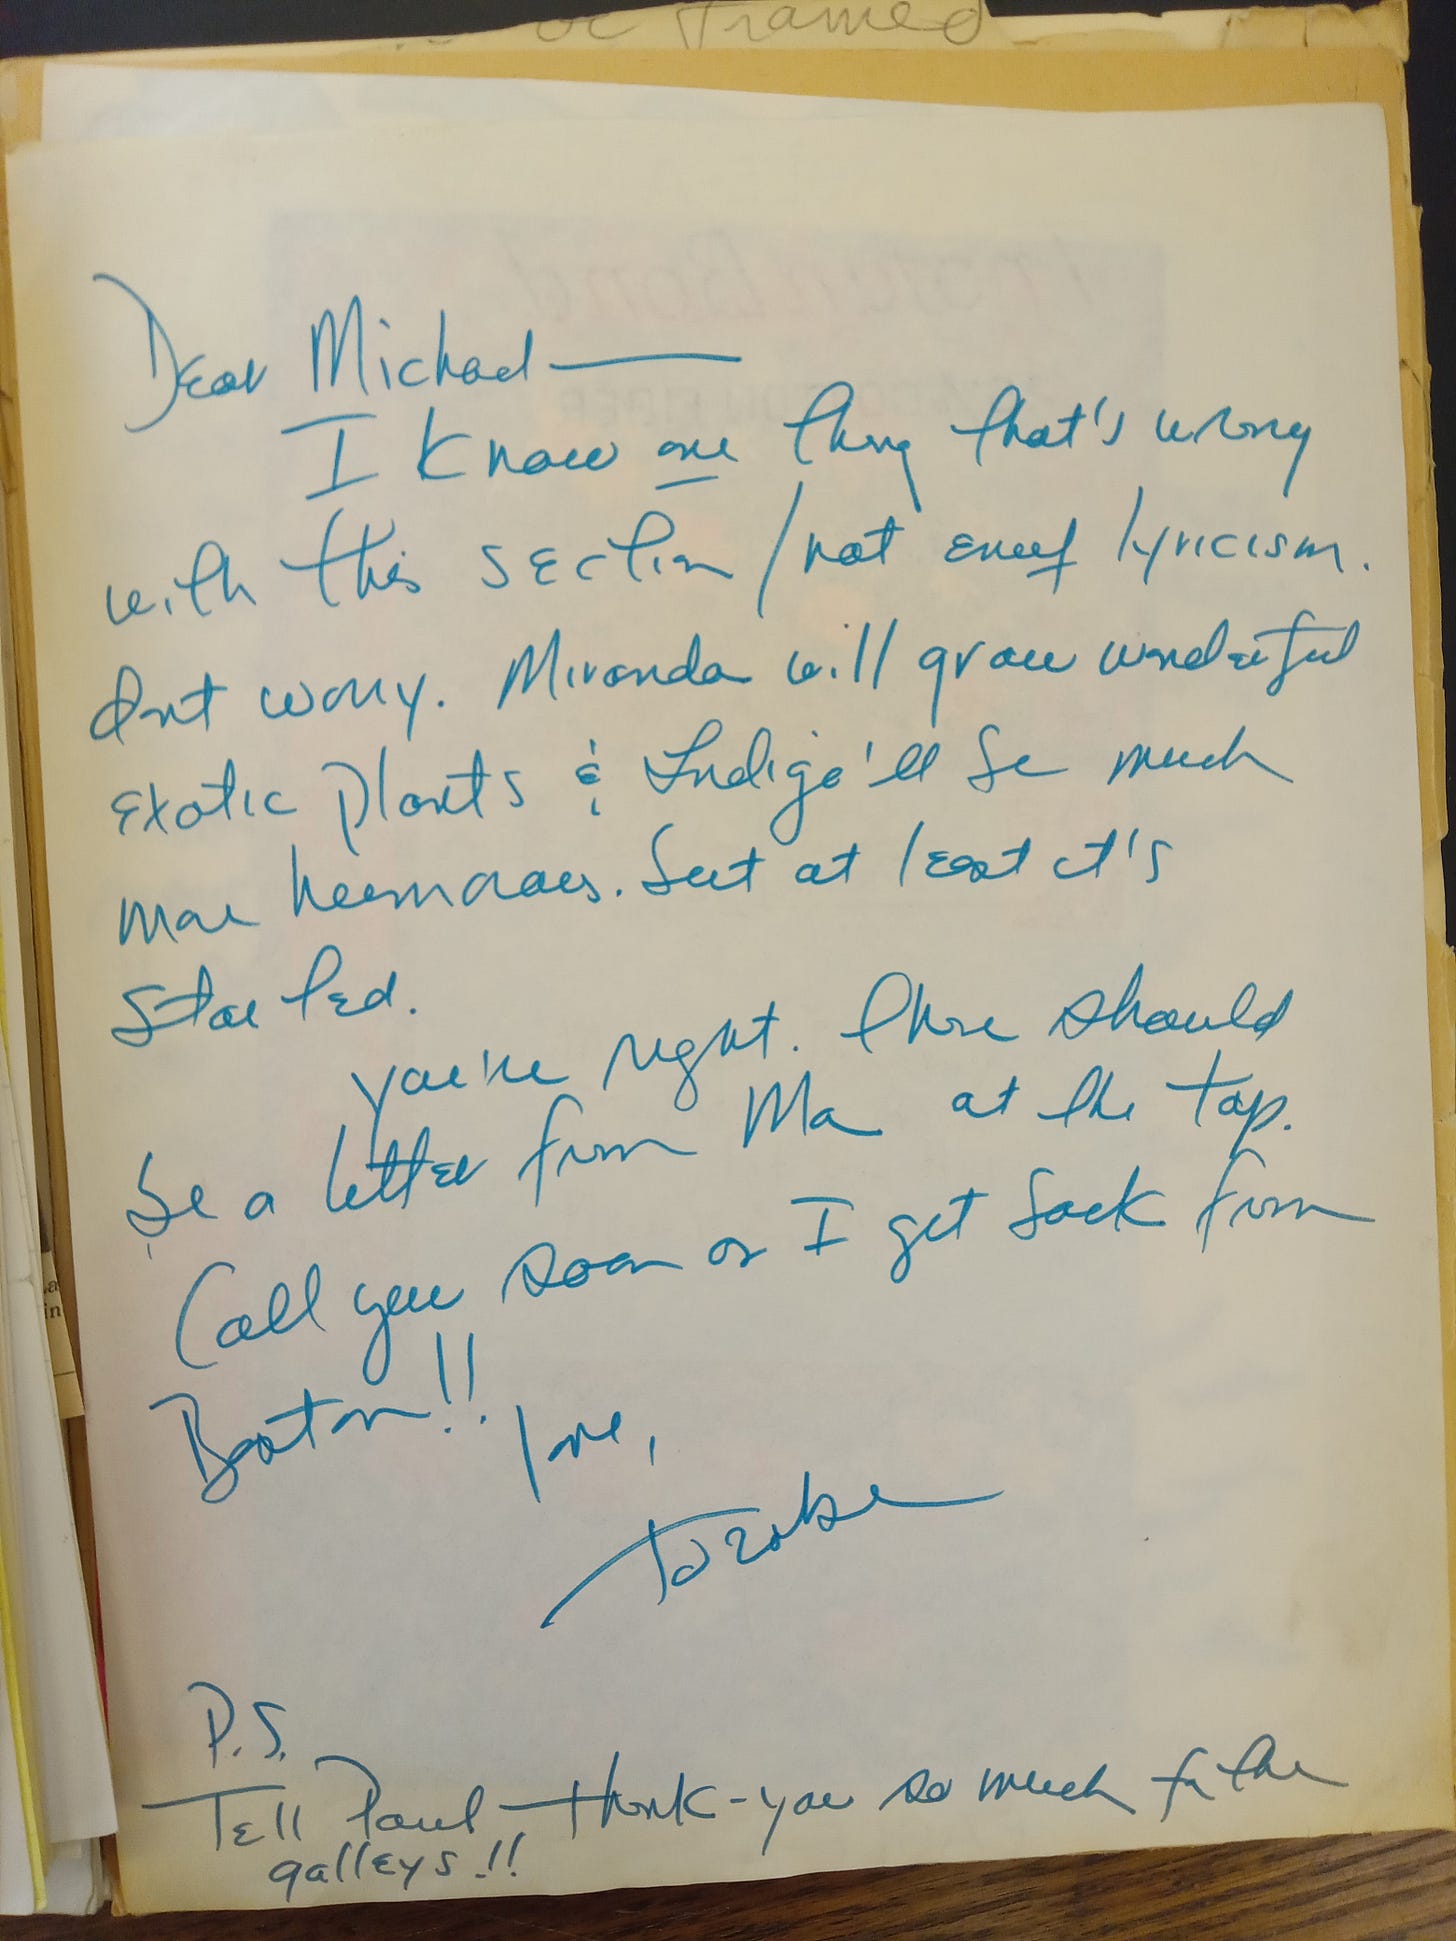 be framed
Dear Michael—
I know one thing that's wrong
with this section / not enuf lyricism.
dont worry. Miranda will grow wonderful
exotic plants & Indigo'll be much
more humorous. but at least it's
started.
you're right. there should
be a letter from Ma at the top.
Call you soon as I get back from
Boston!!
love,
Tozake
P.S.
Tell Paul—thank-you so much for the
galleys!!